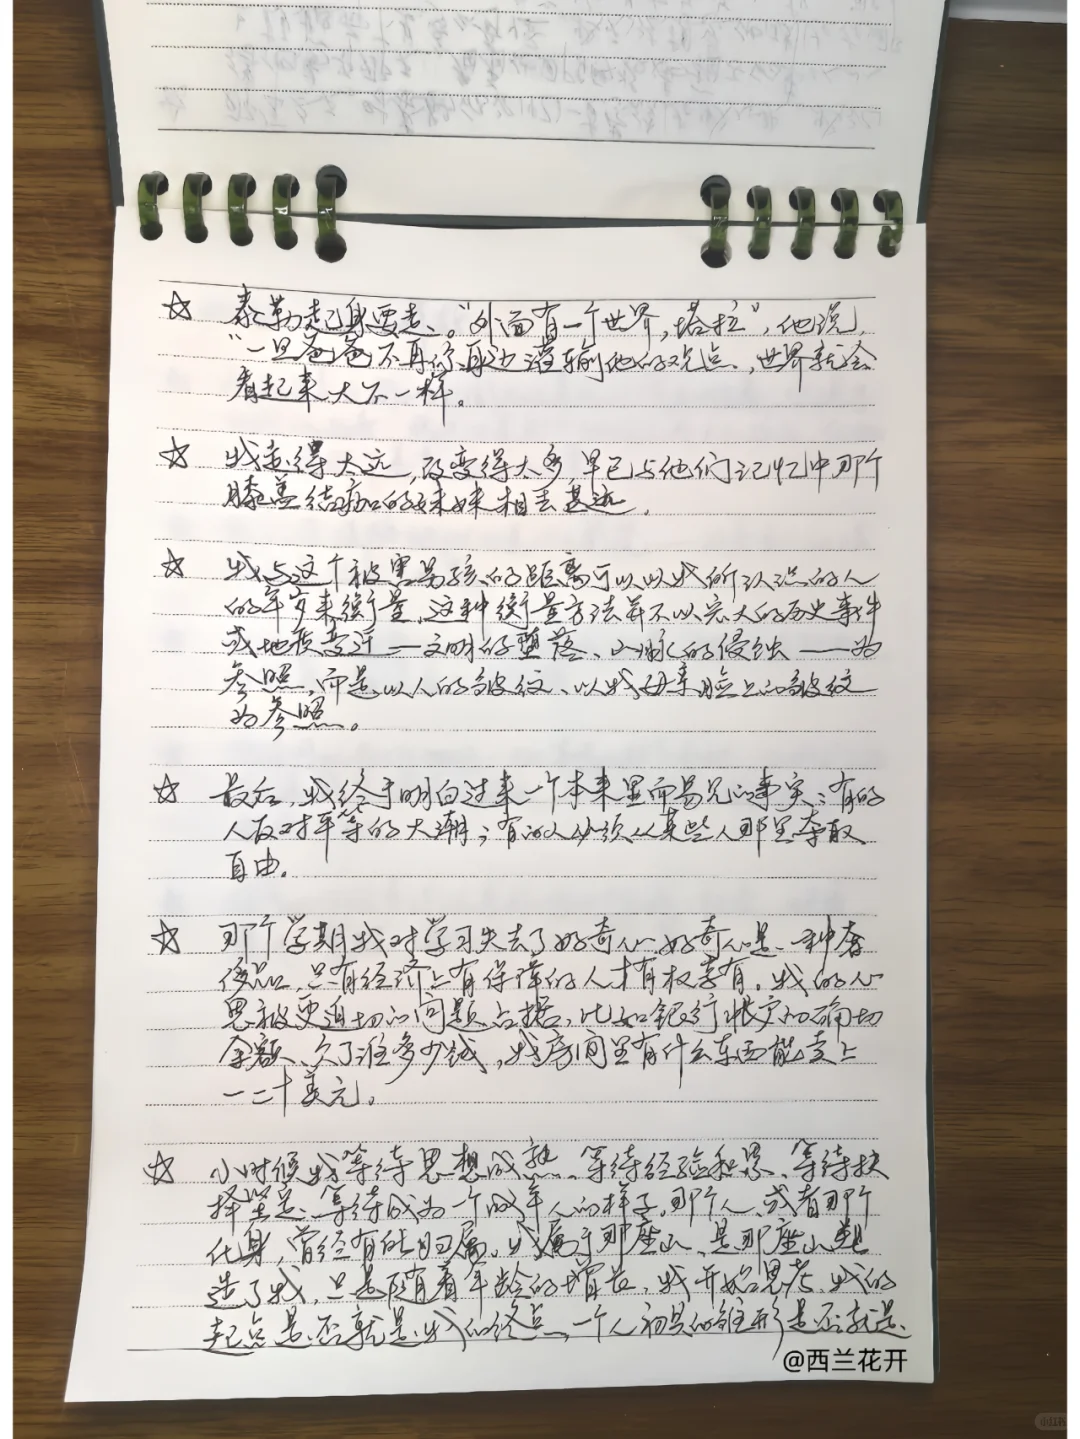 ☆ 泰勒起身要走。“外面有一个世界，塔拉”，他说，
“一旦爸爸不再你身边灌输他的观点，世界就会
看起来大不一样。
☆ 我走得太远，改变得太多，早已与他们记忆中那个
膝盖结痂的妹妹相去甚远。
☆ 我与这个被害男孩的距离可以以我所认识的人
的年岁来衡量，这种衡量方法并不以宏大的历史事件
或地质变迁——文明的堕落、山脉的侵蚀——为
参照，而是以人的皱纹、以我母亲脸上的皱纹
为参照。
☆ 最后，我终于明白过来一个本来显而易见的事实：有的
人反对平等的大潮；有的人必须从某些人那里夺取
自由。
☆ 那个学期我对学习失去了好奇心。好奇心是一种奢
侈品，只有经济上有保障的人才有权享有。我的心
思被更迫切的问题占据，比如银行帐户的确切
余额、欠了谁多少钱，我房间里有什么东西能卖上
一二十美元。
☆ 小时候我等待思想成熟、等待经验积累、等待抉
择坚定、等待成为一个成年人的样子。那个人、或者那个
化身，曾经有所归属。我属于那座山、是那座山塑
造了我，只是随着年龄的增长，我开始思考，我的
起点是否就是我的终点，一个人初具的雏形是否就是
@西兰花开